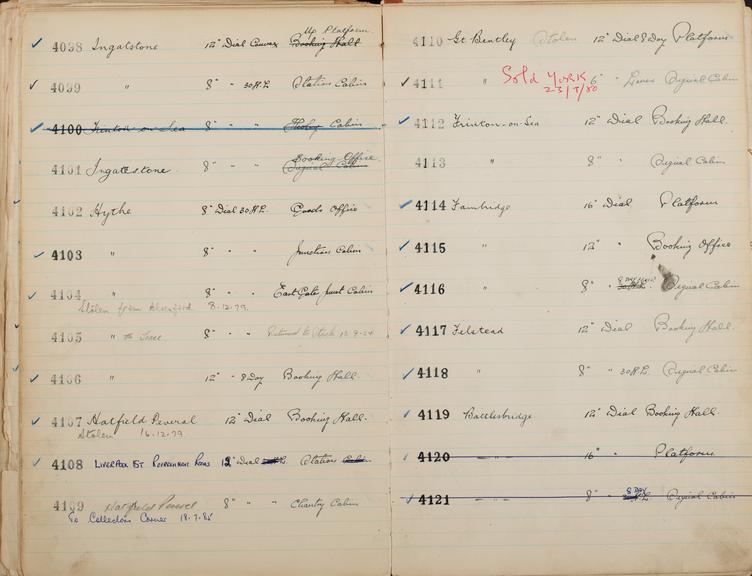 Up Platform
4098 Ingatstone 12" Dial Convex Booking Hall
4099 " 8" " 30 H.P. Station Cabin
4100 Frinton-on-Sea 8" " " Cabin
Booking Office
4101 Ingatestone 8" " " Signal Cabin
4102 Hythe 8" Dial 30 H.P. Goods Office
4103 " 8" " " Junction Cabin
4104 " 8" " " East Gate Junct Cabin
Stolen from 8.12.79
4105 " 8" " " Returned to Stock 12.9.24
4106 " 12" " 8 Day Booking Hall.
4107 Hatfield Peveral 12" Dial Booking Hall.
Stolen 16.12.79
4108 LIVERPOOL ST Rooms 12" Dial Station Cabin
4109 Hatfield Peverel 8" " " Chantry Cabin
To Collectors Corner 18.7.85
4110 Gt Bentley Stolen 12" Dial 8 Day Platform
4111 " Sold YORK 6" " Lever Signal Cabin
23/7/80
4112 Frinton-on-Sea 12" Dial Booking Hall.
4113 " 8" " Signal Cabin
4114 Fambridge 16" Dial Platform
4115 " 12" " Booking Office
8 DAY
4116 " 8" " Signal Cabin
4117 Felstead 12" Dial Booking Hall.
4118 " 8" " 30 H.P. Signal Cabin
4119 Battlesbridge 12" Dial Booking Hall.
4120 " 16" " Platform
8 DAY
4121 " 8" " Signal Cabin